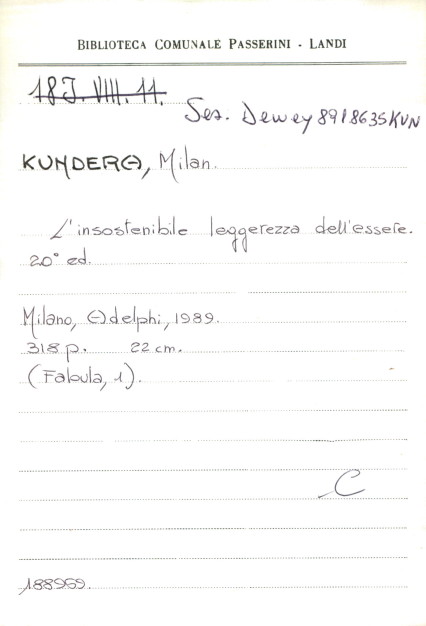 BIBLIOTECA COMUNALE PASSERINI - LANDI
18J. VIII. 11.
Sez. Dewey 8918635KUN
KUNDERA, Milan.
L'insostenibile leggerezza dell'essere.
20° ed.
Milano, Adelphi, 1989.
318 p. 22 cm.
(Fabula, 1).
C
188969.